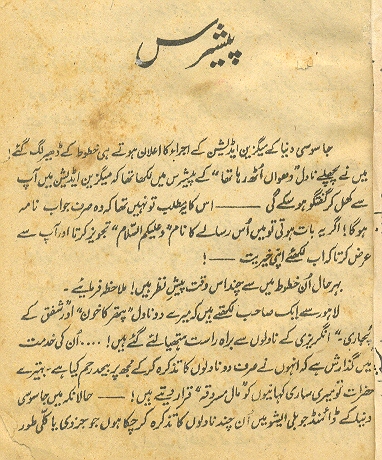 پیشرس
جاسوسی دنیا کے میگزین ایڈیشن کے اجراء کا اعلان ہوتے ہی خطوط کے ڈھیر لگ گئے!
میں نے پچھلے ناول "دھواں اٹھ رہا تھا" کے پیشرس میں لکھا تھا کہ میگزین ایڈیشن میں آپ
سے کھل کر گفتگو ہو سکے گی ——— اس کا یہ مطلب تو نہیں تھا کہ وہ صرف جواب نامہ
ہوگا! اگر یہ بات ہوتی تو میں اُس رسالے کا نام "وعلیکم السّلام" تجویز کرتا اور آپ سے
عرض کرتا کہ اب لکھئے اپنی خیریت ——— !
بہرحال اُن خطوط میں سے چند اس وقت پیشِ نظر ہیں! ملاحظہ فرمایئے۔
لاہور سے ایک صاحب لکھتے ہیں کہ میرے دو ناول "پتھر کا خون" اور "شفق کے
پجاری" انگریزی کے ناولوں سے براہ راست ہتھیا لئے گئے ہیں! .... اُن کی خدمت
میں گذارش ہے کہ انہوں نے صرف دو ناولوں کا تذکرہ کر کے مجھ پر بیحد رحم کیا ہے۔ بہتیرے
حضرات تو میری ساری کہانیوں کو "مال مسروقہ" قرار دیتے ہیں! ——— حالانکہ میں جاسوسی
دنیا کے ڈائمنڈ جوبلی ایشو میں اُن چند ناولوں کا تذکرہ کر چکا ہوں جو جزوی یا کلّی طور